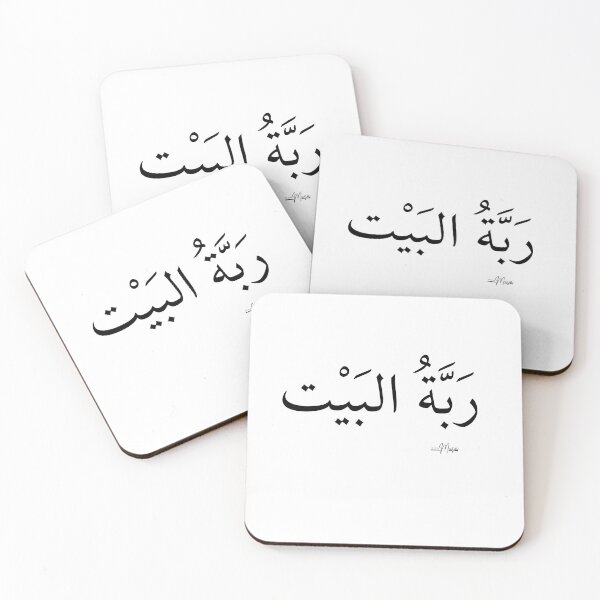 رَبَّةُ البَيْت
رَبَّةُ البَيْت
رَبَّةُ البَيْت
رَبَّةُ البَيْت